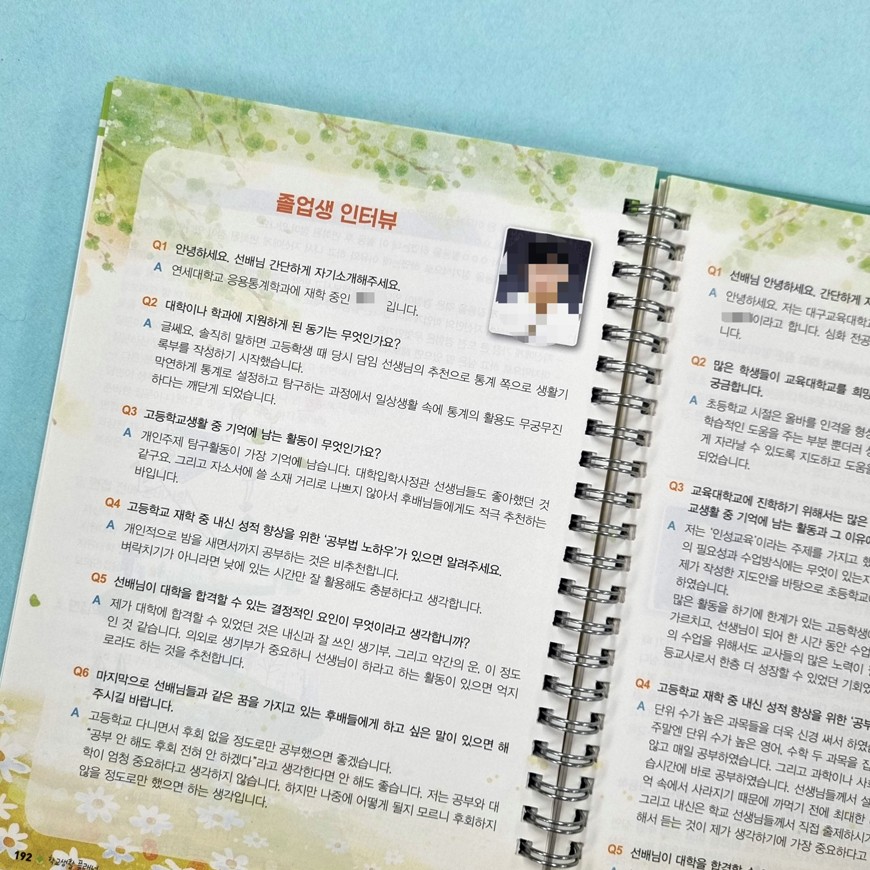 졸업생 인터뷰
Q1 안녕하세요. 선배님 간단하게 자기소개해주세요.
A 연세대학교 응용통계학과에 재학 중인 입니다.
Q2 대학이나 학과에 지원하게 된 동기는 무엇인가요?
A 글쎄요. 솔직히 말하면 고등학생 때 당시 담임 선생님의 추천으로 통계 쪽으로 생활기
록부를 작성하기 시작했습니다.
막연하게 통계로 설정하고 탐구하는 과정에서 일상생활 속에 통계의 활용도 무궁무진
하다는 깨닫게 되었습니다.
Q3 고등학교생활 중 기억에 남는 활동이 무엇인가요?
A 개인주제 탐구활동이 가장 기억에 남습니다. 대학입학사정관 선생님들도 좋아했던 것
같구요. 그리고 자소서에 쓸 소재 거리로 나쁘지 않아서 후배님들에게도 적극 추천하는
바입니다.
Q4 고등학교 재학 중 내신 성적 향상을 위한 '공부법 노하우'가 있으면 알려주세요.
A 개인적으로 밤을 새면서까지 공부하는 것은 비추천합니다.
벼락치기가 아니라면 낮에 있는 시간만 잘 활용해도 충분하다고 생각합니다.
Q5 선배님이 대학을 합격할 수 있는 결정적인 요인이 무엇이라고 생각합니까?
A 제가 대학에 합격할 수 있었던 것은 내신과 잘 쓰인 생기부, 그리고 약간의 운, 이 정도
인 것 같습니다. 의외로 생기부가 중요하니 선생님이 하라고 하는 활동이 있으면 억지
로라도 하는 것을 추천합니다.
Q6 마지막으로 선배님들과 같은 꿈을 가지고 있는 후배들에게 하고 싶은 말이 있으면 해
주시길 바랍니다.
A 고등학교 다니면서 후회 없을 정도로만 공부했으면 좋겠습니다.
"공부 안 해도 후회 전혀 안 하겠다"라고 생각한다면 안 해도 좋습니다. 저는 공부와 대
학이 엄청 중요하다고 생각하지 않습니다. 하지만 나중에 어떻게 될지 모르니 후회하지
않을 정도로만 했으면 하는 생각입니다.
192 학교생활 플래너
Q1 선배님 안녕하세요. 간단하게 자
A 안녕하세요. 저는 대구교육대학
이라고 합니다. 심화 전공
니다.
Q2 많은 학생들이 교육대학교를 희망
궁금합니다.
A 초등학교 시절은 올바를 인격을 형성
학습적인 도움을 주는 부분 뿐더러
게 자라날 수 있도록 지도하고 도움을
되었습니다.
Q3 교육대학교에 진학하기 위해서는 많은
교생활 중 기억에 남는 활동과 그 이유
A 저는 '인성교육'이라는 주제를 가지고
의 필요성과 수업방식에는 무엇이 있는지
제가 작성한 지도안을 바탕으로 초등학교
하였습니다.
많은 활동을 하기에 한계가 있는 고등학생
가르치고, 선생님이 되어 한 시간 동안 수업
의 수업을 위해서도 교사들의 많은 노력이
등교사로서 한층 더 성장할 수 있었던 기회
Q4 고등학교 재학 중 내신 성적 향상을 위한 '공부
A 단위 수가 높은 과목들을 더욱 신경 써서 하였
주말엔 단위 수가 높은 영어, 수학 두 과목을 집
않고 매일 공부하였습니다. 그리고 과학이나 사회
습시간에 바로 공부하였습니다. 선생님들께서 설
억 속에서 사라지기 때문에 까먹기 전에 최대한
그리고 내신은 학교 선생님들께서 직접 출제하시기
해서 듣는 것이 제가 생각하기에 가장 중요하다고
Q5 선배님이 대학을 합격할 수